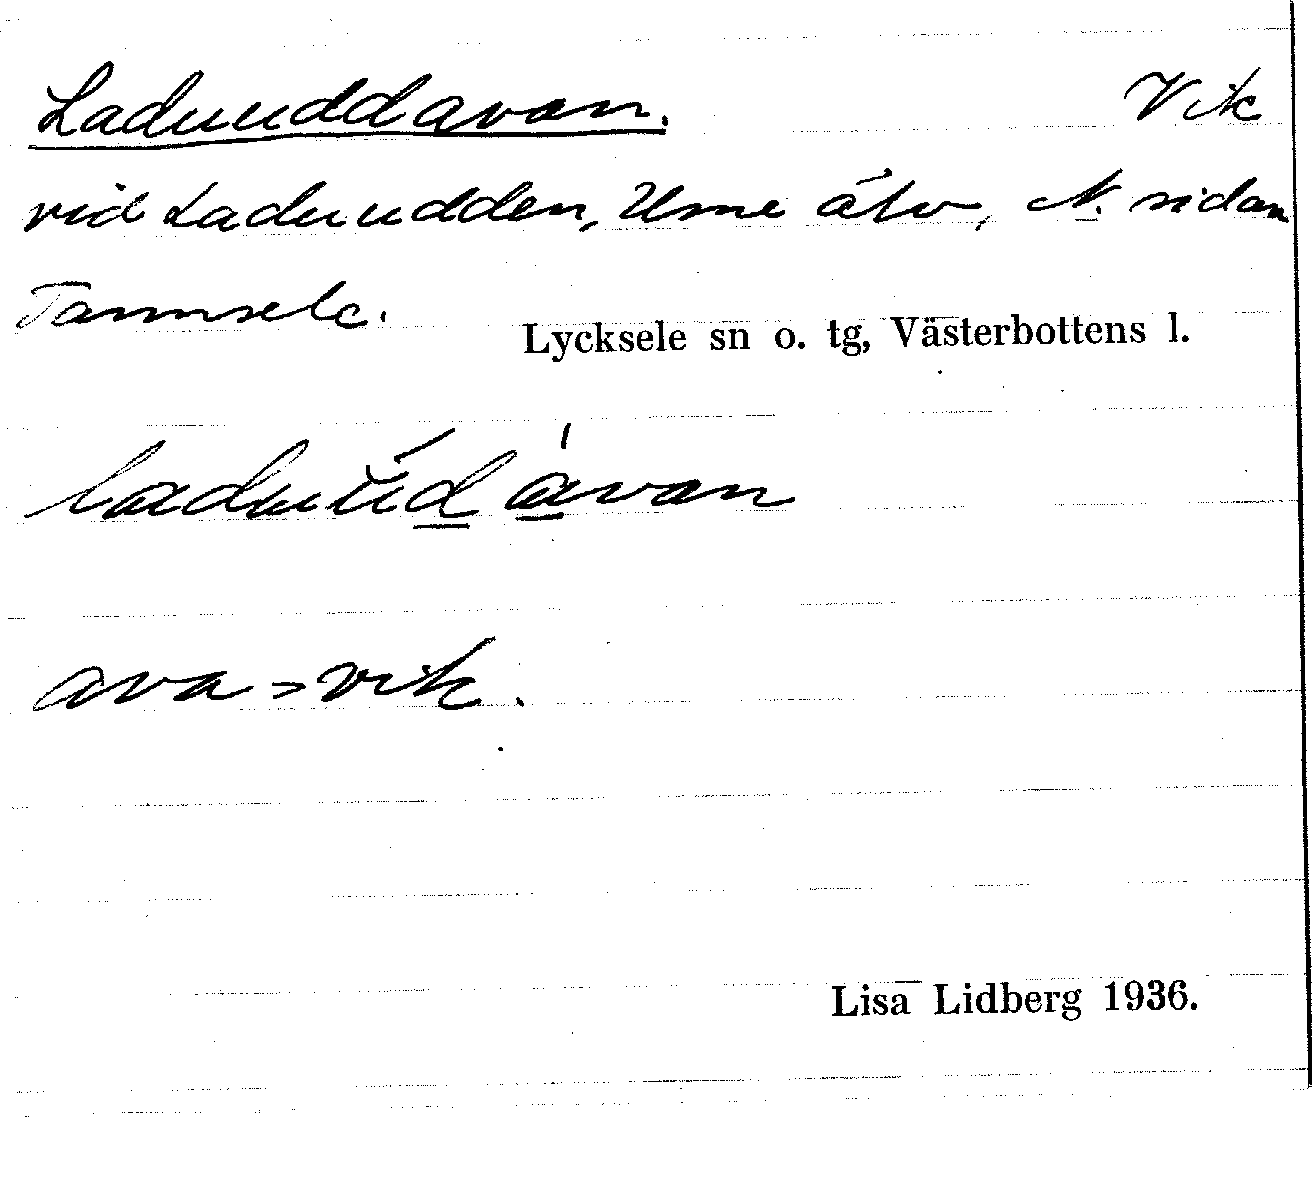 Laduuddavan. Vik
vid Laduudden, Ume älv, N. sidan
Tannsele.
Lycksele sn o. tg, Västerbottens l.
laduúd ávan
ava = vik.
Lisa Lidberg 1936.